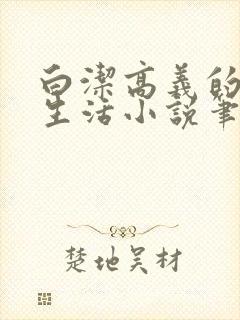 白潔高義的
生活小說筆
楚地吴材